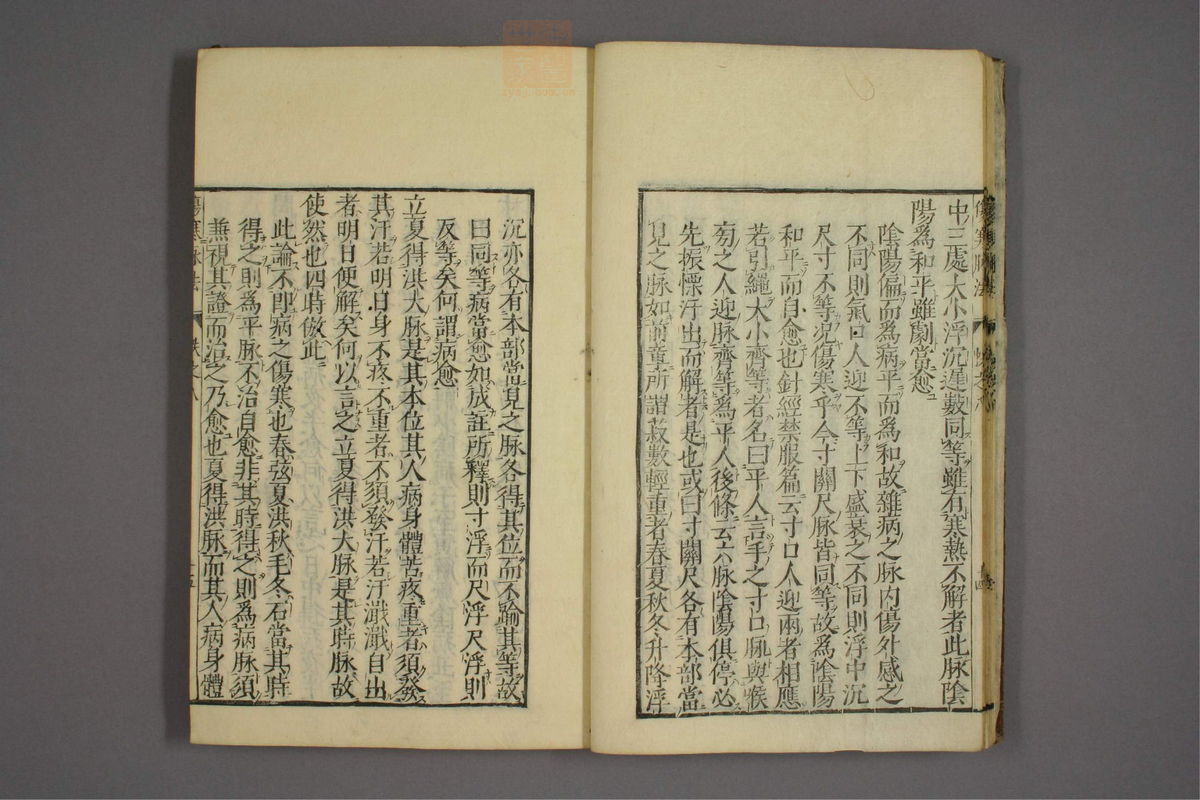 中三處大小浮沉遲數同等雖有寒熱不解者此脉陰
陽爲和平雖劇當愈
陰陽偏而爲病平而爲和故雜病之脉内傷外感之
不同則氣口人迎不等上下盛衰之不同則浮中沉
尺寸不等况傷寒乎今寸關尺脉皆同等故爲陰陽
和平而自愈也針經禁服篇云寸口人迎兩者相應
若引繩大小齊等者名曰平人言手之寸口脉與喉
旁之人迎脉齊等爲平人後條云六脉陰陽俱停必
先振慄汗出而解者是也或曰寸關尺各有本部當
見之脉如前章所謂菽數輕重者春夏秋冬升降浮
沉亦各有本部當見之脉各得其位而不踰其等故
曰同等病當愈如成註所釋則寸浮而尺浮尺浮則
反等矣何謂病愈
立夏得洪大脉是其本位其人病身體苦疼重者須發
其汗若明日身不疼不重者不須發汗若汗濈濈自出
者明日便解矣何以言之立夏得洪大脉是其時脉故
使然也四時倣此
此論不即病之傷寒也春弦夏洪秋毛冬石當其時
得之則爲平脉不治自愈非其時得之則爲病脉須
兼視其證而治之乃愈也夏得洪脉而其人病身體
傷寒脉法